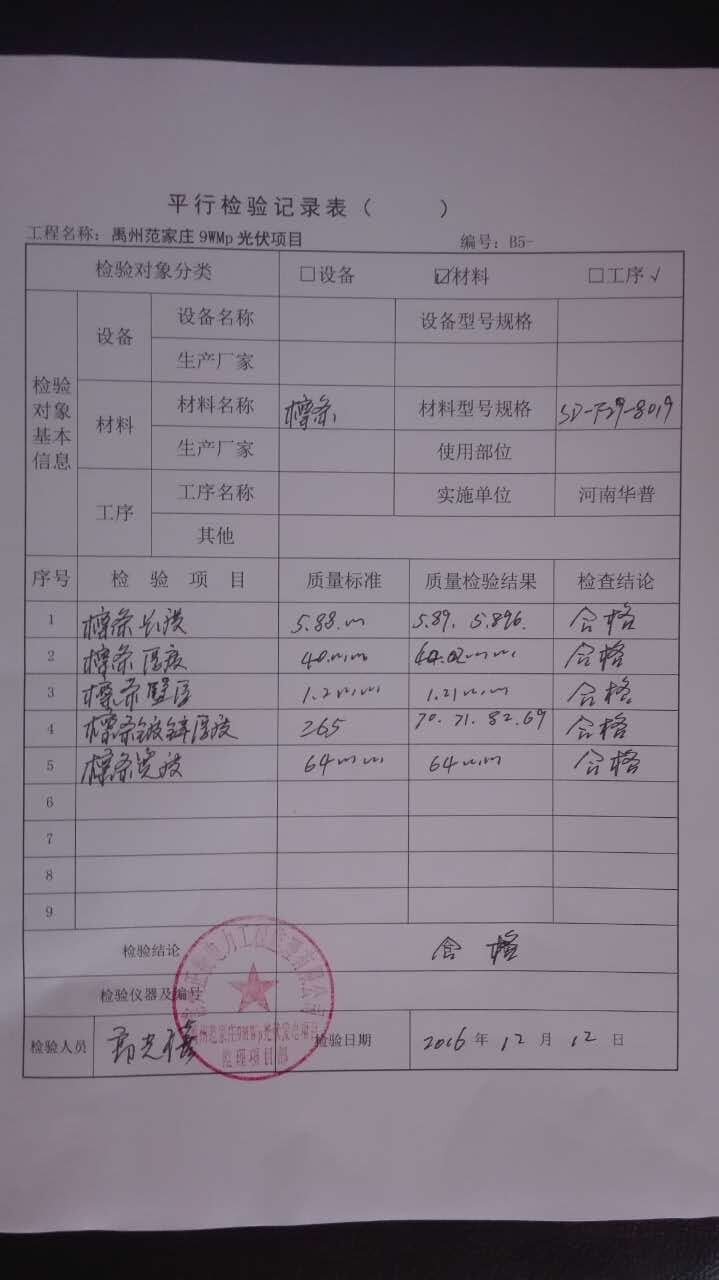 平行检验记录表（ ）
工程名称：禹州范家庄9WMp光伏项目 编号：B5-
检验对象分类 □设备 ☑材料 □工序√
检验对象基本信息 设备 设备名称 设备型号规格
生产厂家
材料 材料名称 檩条 材料型号规格 SD-F29-8019
生产厂家 使用部位
工序 工序名称 实施单位 河南华普
其他
序号 检验项目 质量标准 质量检验结果 检查结论
1 檩条长度 5.88.m 5.89. 5.896. 合格
2 檩条厚度 40mm 40.02mm 合格
3 檩条壁厚 1.2mm 1.21mm 合格
4 檩条镀锌厚度 ≥65 70.71.82.69 合格
5 檩条宽度 64mm 64mm 合格
6
7
8
9
检验结论 合格
检验仪器及编号
检验人员 检验日期 2016年12月12日
电力工程 有限公司
州范家庄9MWp光伏发电项目
监理项目部